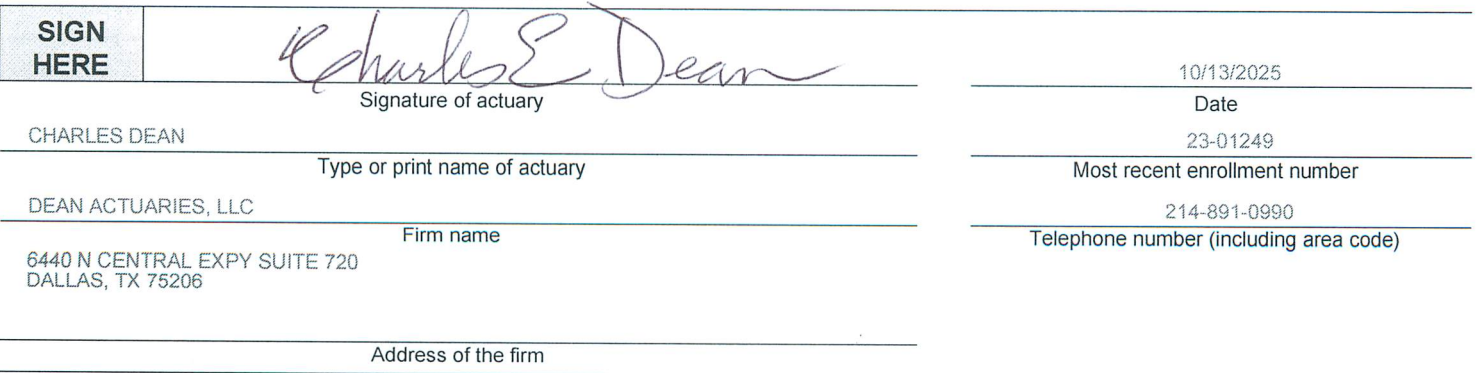 SIGN
HERE
Charles E Dean
Signature of actuary
10/13/2025
Date
CHARLES DEAN
Type or print name of actuary
23-01249
Most recent enrollment number
DEAN ACTUARIES, LLC
Firm name
214-891-0990
Telephone number (including area code)
6440 N CENTRAL EXPY SUITE 720
DALLAS, TX 75206
Address of the firm